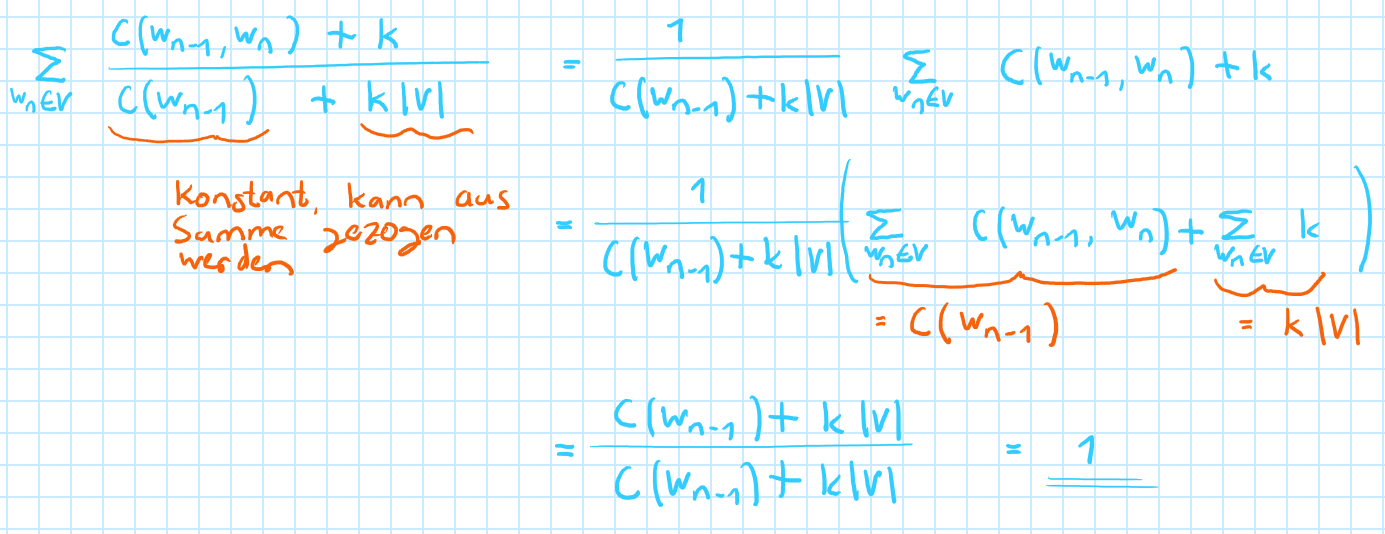 ∑_{wₙ∈V} (C(wₙ₋₁, wₙ) + k) / (C(wₙ₋₁) + k|V|) = 1 / (C(wₙ₋₁) + k|V|) ∑_{wₙ∈V} C(wₙ₋₁, wₙ) + k
Konstant, kann aus
Summe gezogen
werden
= 1 / (C(wₙ₋₁) + k|V|) (∑_{wₙ∈V} C(wₙ₋₁, wₙ) + ∑_{wₙ∈V} k)
= C(wₙ₋₁) = k|V|
= (C(wₙ₋₁) + k|V|) / (C(wₙ₋₁) + k|V|) = 1